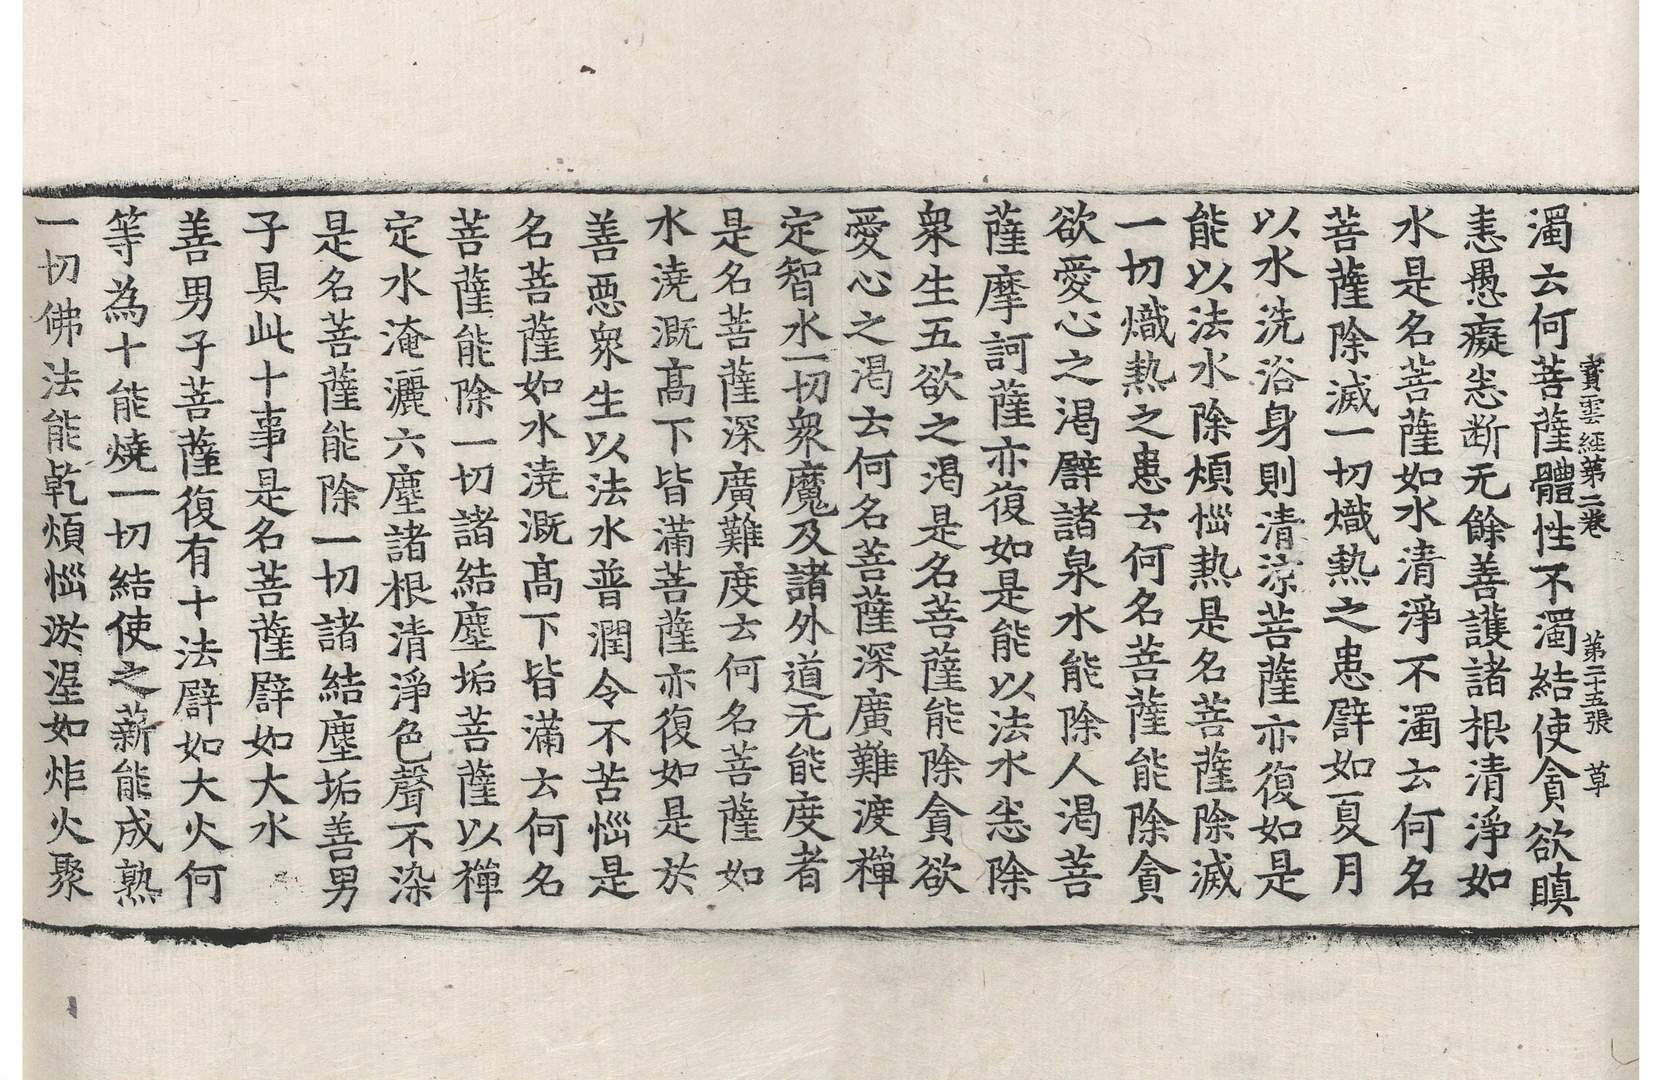 寶雲經第二卷　第二十五張　草
濁云何菩薩體性不濁結使貪欲瞋
恚愚癡悉断无餘善護諸根清淨如
水是名菩薩如水清淨不濁云何名
菩薩除滅一切熾熱之患譬如夏月
以水洗浴身則清涼菩薩亦復如是
能以法水除煩惱熱是名菩薩除滅
一切熾熱之患云何名菩薩能除貪
欲愛心之渴譬諸泉水能除人渴菩
薩摩訶薩亦復如是能以法水悉除
衆生五欲之渴是名菩薩能除貪欲
愛心之渴云何名菩薩深廣難渡禪
定智水一切衆魔及諸外道无能度者
是名菩薩深廣難度云何名菩薩如
水澆溉髙下皆滿菩薩亦復如是於
善惡衆生以法水普潤令不苦惱是
名菩薩如水澆溉髙下皆滿云何名
菩薩能除一切諸結塵垢菩薩以禪
定水淹灑六塵諸根清淨色聲不染
是名菩薩能除一切諸結塵垢善男
子具此十事是名菩薩譬如大水
善男子菩薩復有十法譬如大火何
等為十能燒一切結使之薪能成熟
一切佛法能乾煩惱淤泥如炬火聚